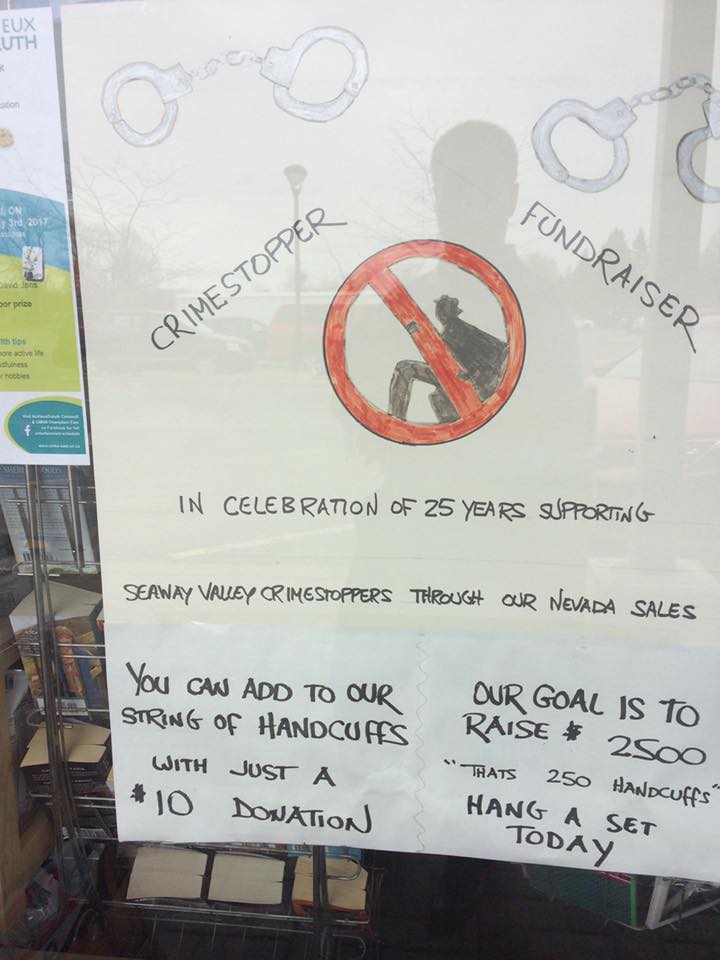 EUX
UTH
ation
ON
y 3rd, 2017
oor prize
lth tips
more active life
dfulness
r hobbies
CRIMESTOPPER
FUNDRAISER
IN CELEBRATION OF 25 YEARS SUPPORTING
SEAWAY VALLEY CRIMESTOPPERS THROUGH OUR NEVADA SALES
YOU CAN ADD TO OUR
STRING OF HANDCUFFS
WITH JUST A
$10 DONATION
OUR GOAL IS TO
RAISE $ 2500
"THATS 250 HANDCUFFS"
HANG A SET
TODAY